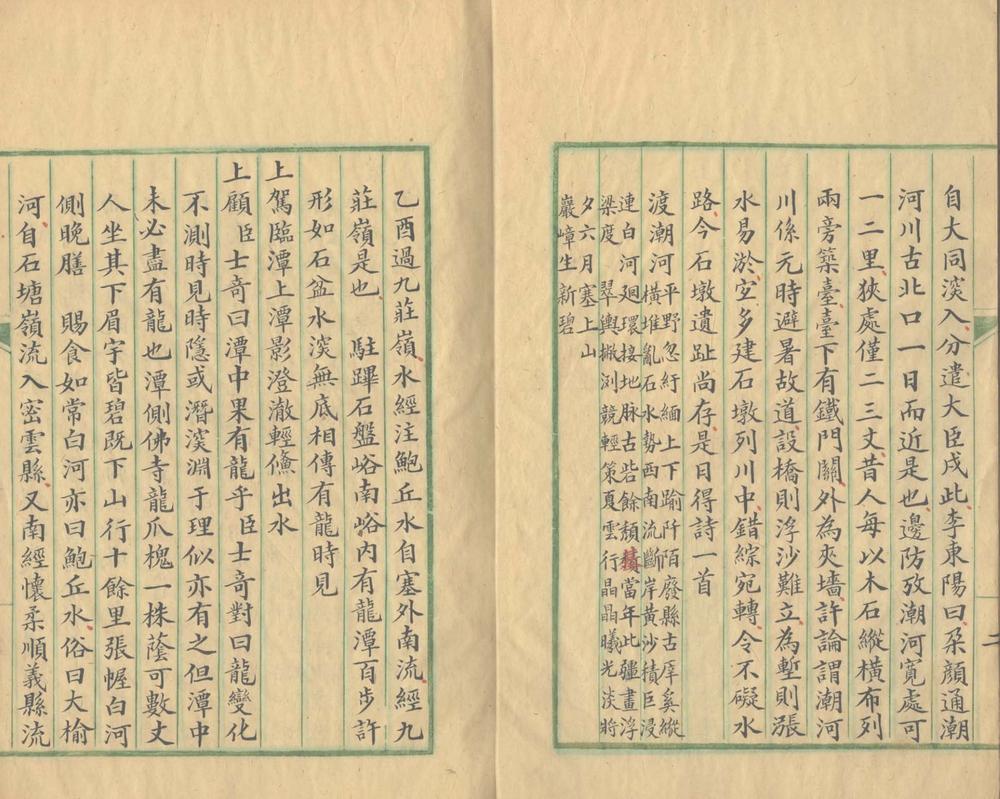 自大同深入分遣大臣戍此李東陽曰朶顏通潮
河川古北口一日而近是也邊防攷潮河寬處可
一二里狹處僅二三丈昔人每以木石縱橫布列
兩旁築臺臺下有鐵門關外為夾墻許論謂潮河
川係元時避暑故道設橋則浮沙難立為塹則漲
水易淤空多建石墩列川中錯綜宛轉令不礙水
路今石墩遺趾尚存是日得詩一首
渡潮河平野忽紆緬上下踰阡陌廢縣古厗奚縱
橫堆亂石水勢西南流斷岸黃沙積巨浸
連白河廻環接地脉古砦餘頹積當年此疆畫浮
梁度翠輿撇浏競輕策夏雲行晶晶曦光淡將
夕六月塞上山
巖嶂生新碧
二
乙酉過九莊嶺水經注鮑丘水自塞外南流經九
莊嶺是也 駐蹕石盤峪南峪內有龍潭百步許
形如石盆水深無底相傳有龍時見
上駕臨潭上潭影澄澈輕鯈出水
上顧臣士奇曰潭中果有龍乎臣士奇對曰龍變化
不測時見時隱或潛深淵于理似亦有之但潭中
未必盡有龍也潭側佛寺龍爪槐一株蔭可數丈
人坐其下眉宇皆碧既下山行十餘里張幄白河
側晚膳 賜食如常白河亦曰鮑丘水俗曰大榆
河自石塘嶺流入密雲縣又南經懷柔順義縣流